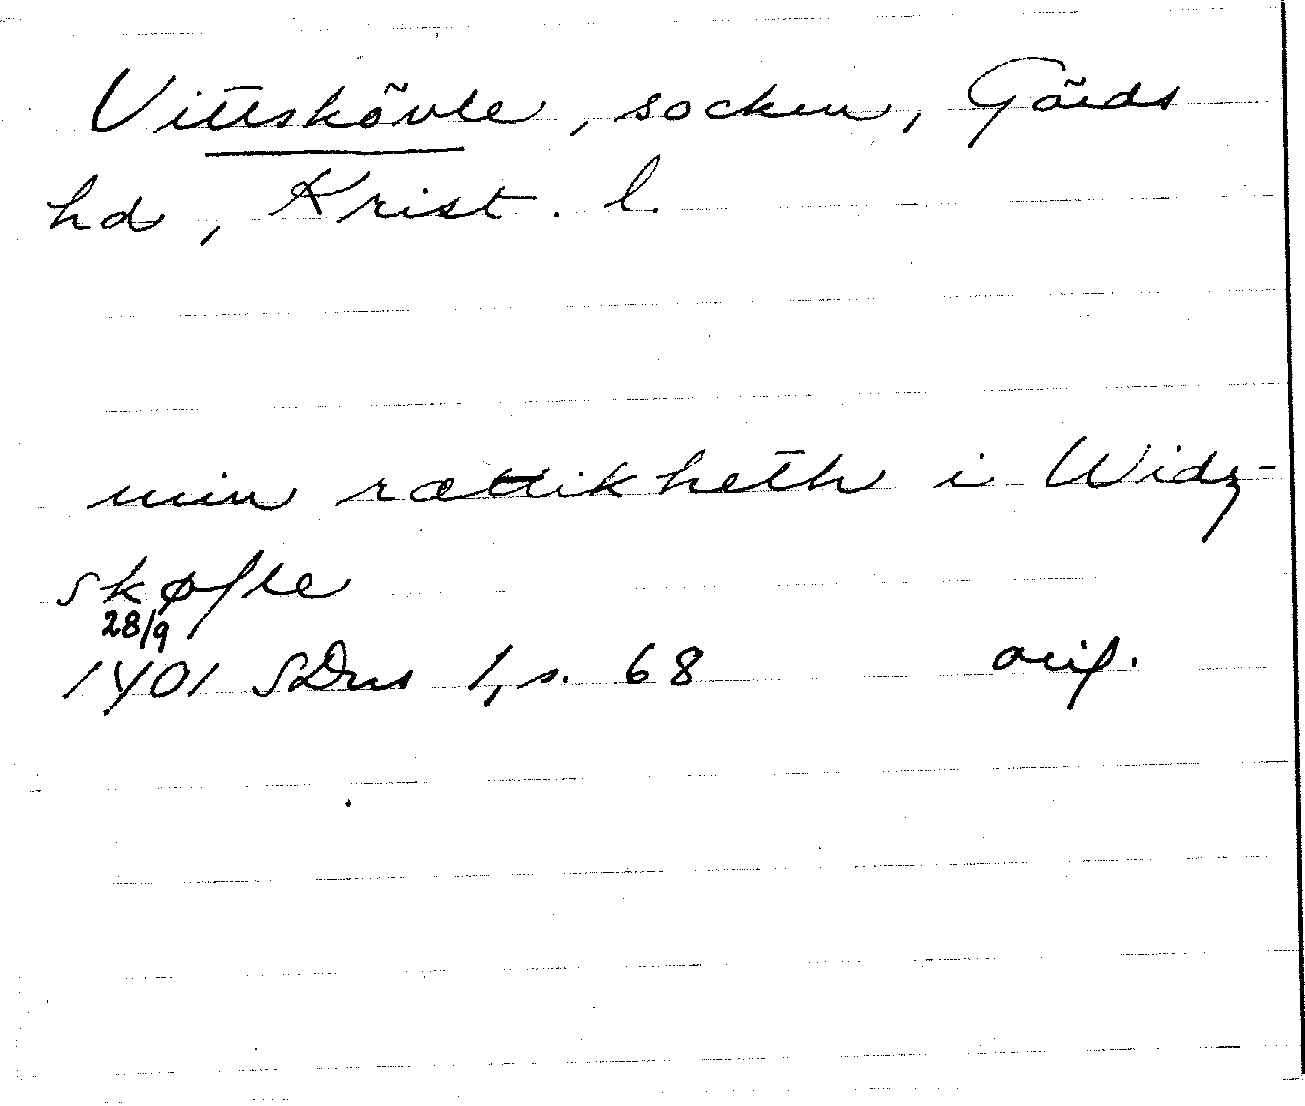 Vittskövle, socken, Gärds
hd, Krist. l.
min rættikheth i Widz-
skøfle
28/9
1401 SDns 1, s. 68 orig.